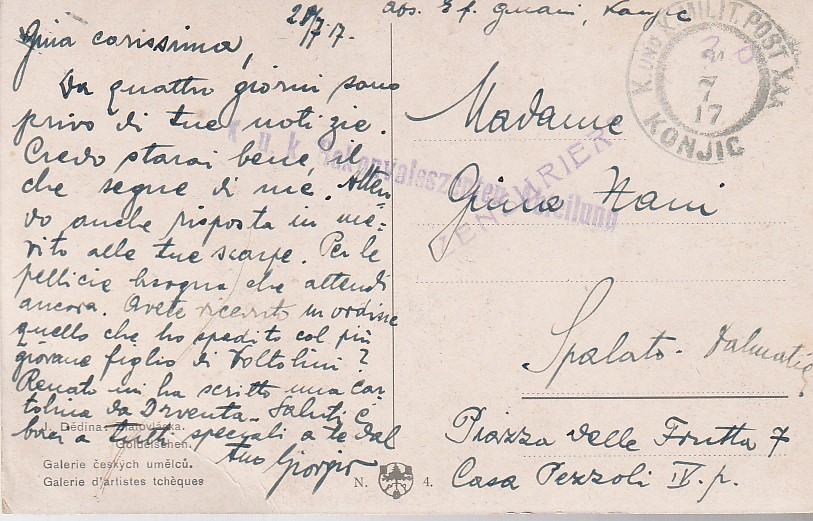 2/7 17.
Gina carissima,
Da quattro giorni sono
privo di tue notizie.
Credo starai bene, il
che segue di me. Atten=
do anche risposta in me=
rito alle tue scarpe. Per le
pellicie bisogna che attendi
ancora. Avete ricevuto in ordine
quello che ho spedito col più
giovane figlio di Voltolini?
Renato mi ha scritto una car
tolina da Drventa. Saluti e
baci a tutti speciali a te dal
tuo Giorgio
J. Dědina: Zlatovláska.
Goldelschen.
Galerie českých umělců.
Galerie d'artistes tchèques
N. 4.
abs. Konjic
K. UND K. MILIT. POST
2
7
17
KONJIC
k. u. k. Rekonvaleszenten Abteilung
ZENSURIERT
Madame
Gina Nani
Spalato - Dalmatien
Piazza delle Frutta 7
Casa Pezzoli IV. p.